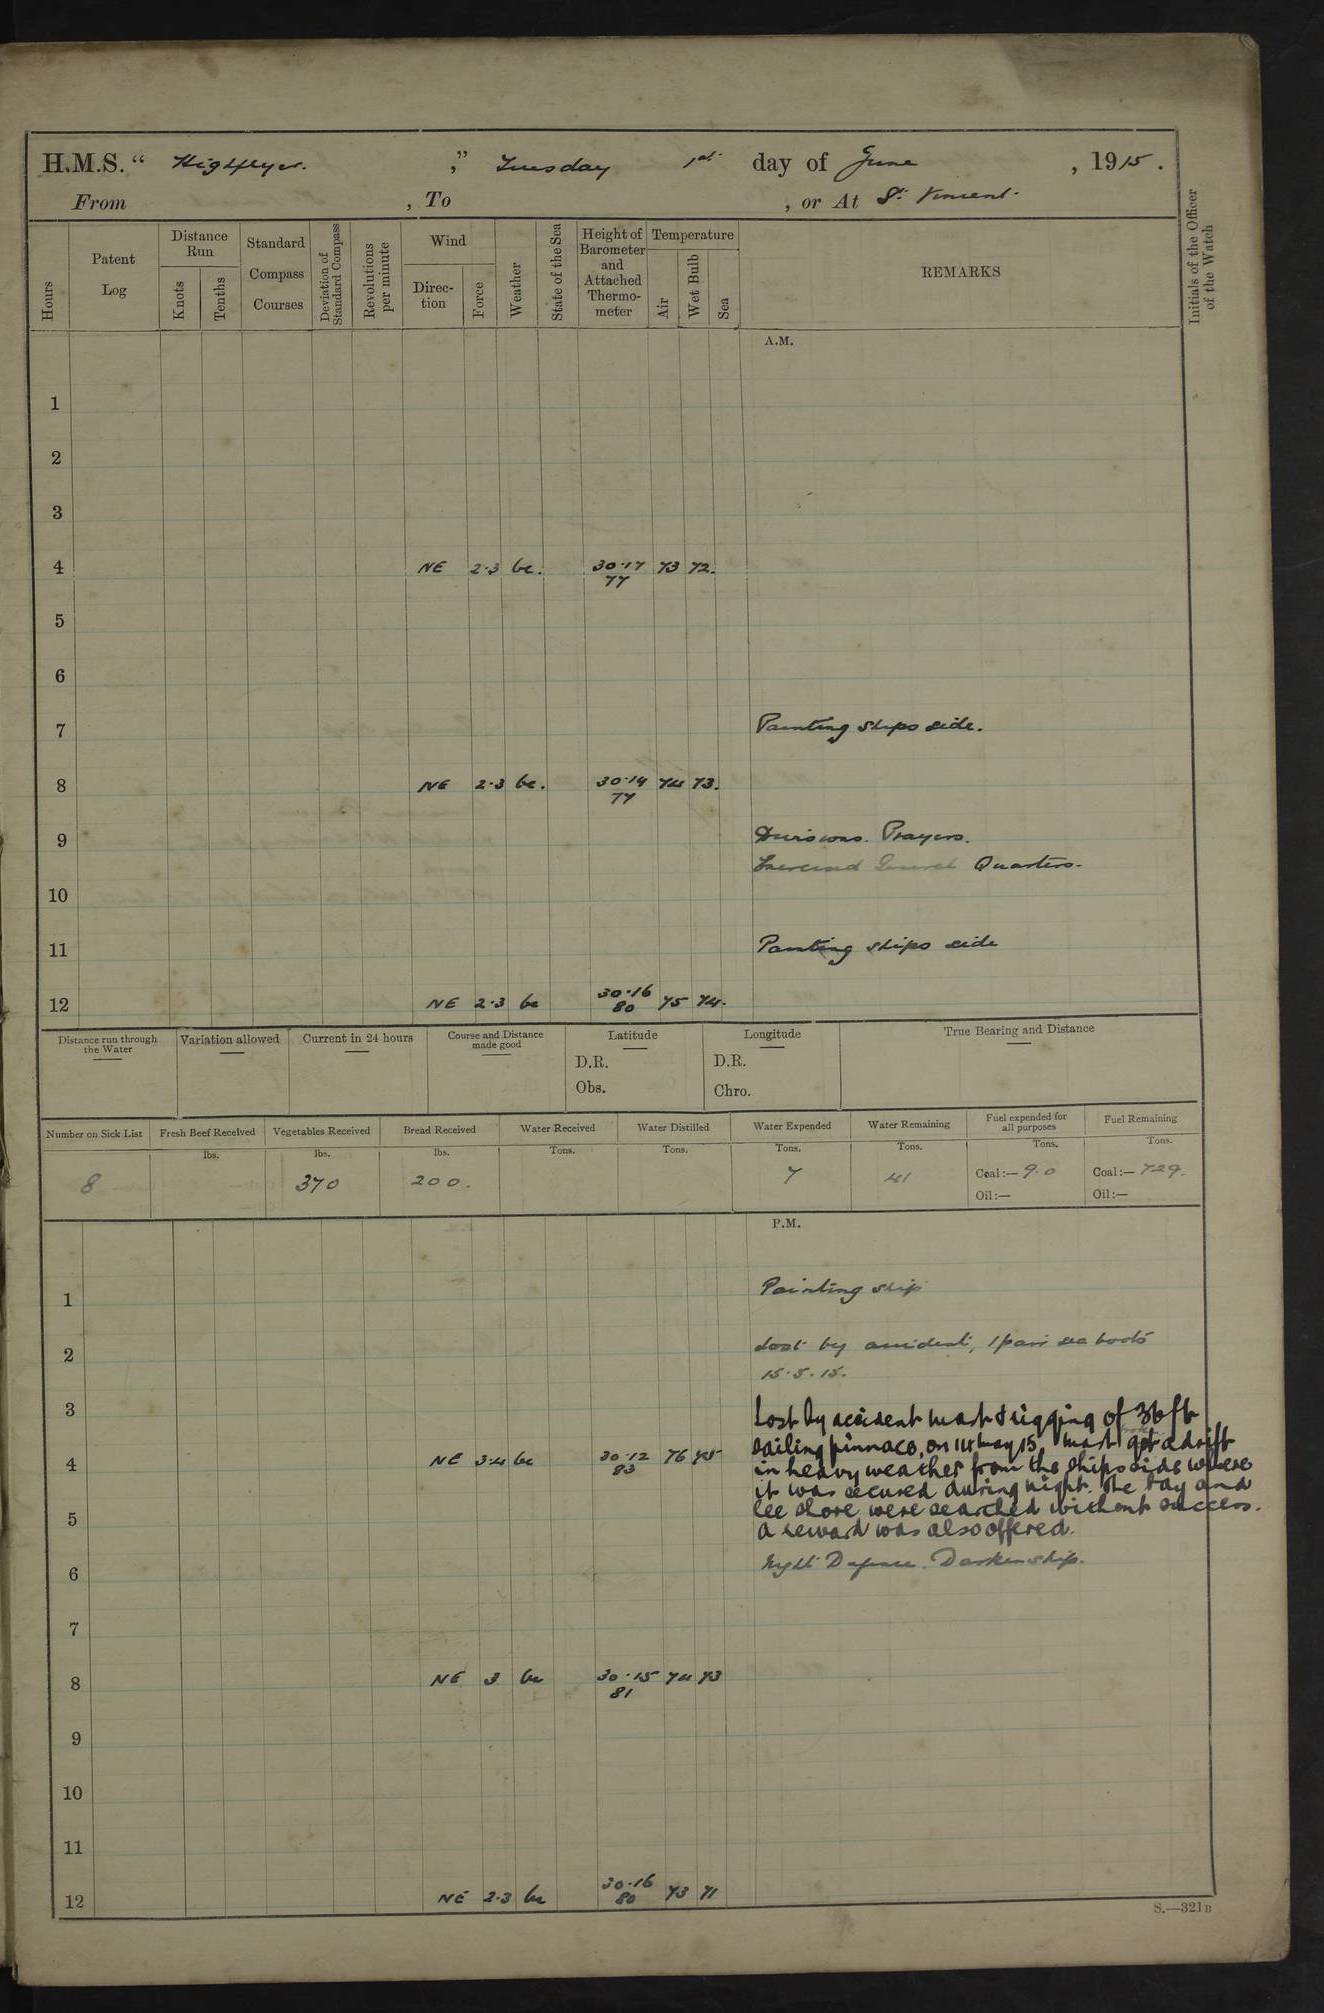 H.M.S. " Highflyer. ," Tuesday 1st day of June , 1915.
From , To , or At St. Vincent.
Hours
Patent Log
Distance Run
Knots
Tenths
Standard Compass Courses
Deviation of Standard Compass
Revolutions per minute
Wind
Direction
Force
Weather
State of the Sea
Height of Barometer and Attached Thermometer
Temperature
Air
Wet Bulb
Sea
REMARKS
Initials of the Officer of the Watch
A.M.
1
2
3
4 NE 2·3 bc. 30·17 73 72.
77
5
6
7 Painting ships side.
8 NE 2·3 bc. 30·14 74 73.
77
9 Divisions. Prayers.
Exercised General Quarters.
10
11 Painting ships side
12 NE 2·3 bc 30·16 75 74.
80
Distance run through the Water
Variation allowed
Current in 24 hours
Course and Distance made good
Latitude
D.R.
Obs.
Longitude
D.R.
Chro.
True Bearing and Distance
Number on Sick List
Fresh Beef Received
Vegetables Received
Bread Received
Water Received
Water Distilled
Water Expended
Water Remaining
Fuel expended for all purposes
Fuel Remaining
lbs. lbs. lbs. Tons. Tons. Tons. Tons. Tons. Tons.
8 370 200. 7 41 Coal:— 9·0 Coal:— 729.
Oil:— Oil:—
P.M.
1 Painting ship
2 Lost by accident, 1 pair sea boots
15·5·15.
3 Lost by accident mast & rigging of 36 ft
sailing pinnace, on 11th May 15. Mast got adrift
4 NE 3·4 bc 30·12 76 75
83
in heavy weather from the ships side where
it was secured during night. The bay and
5 lee shore were searched without success.
A reward was also offered.
6 Night Defence. Darken ship.
7
8 NE 3 bc 30·15 74 73
81
9
10
11
12 NE 2·3 bc 30·16 73 71
80
S.—321B